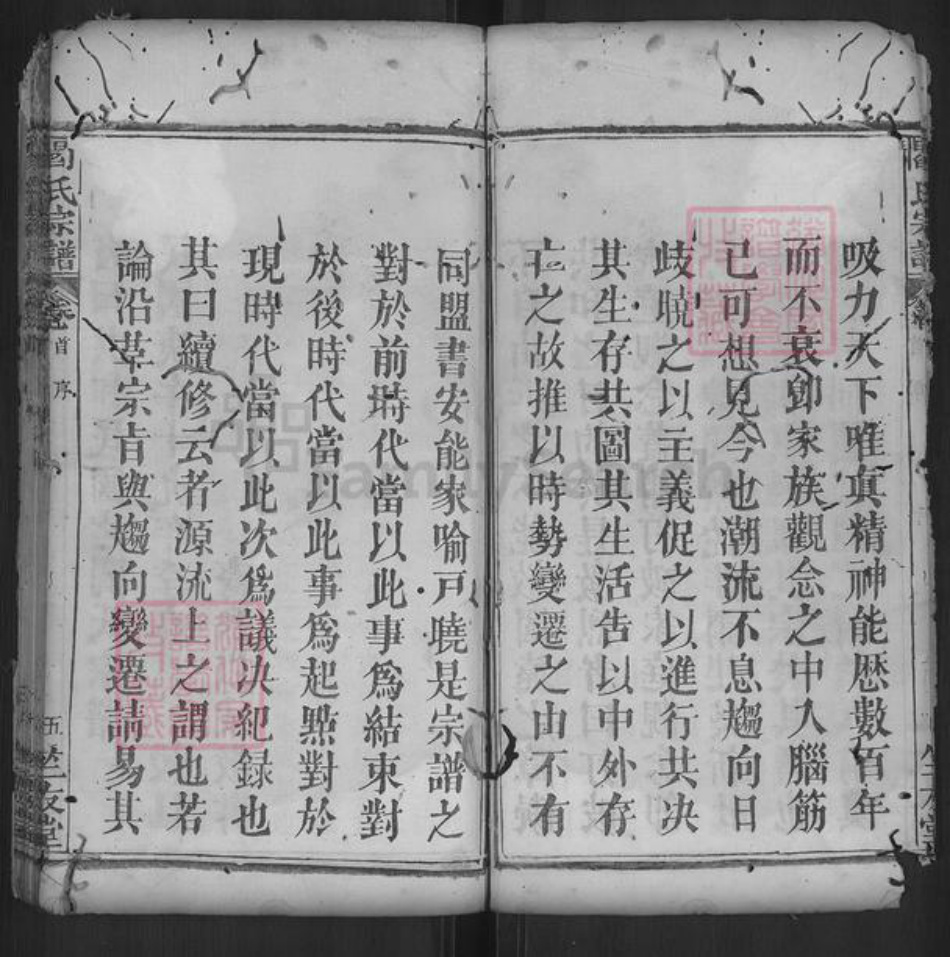 吸力天下唯真精神能歷數百年
而不衰卽家族觀念之中入腦筋
已可想見今也潮流不息趨向日
歧曉之以主義促之以進行共决
其生存共圖其生活告以中外存
亡之故推以時勢變遷之由不有
同盟書安能家喻戸曉是宗譜之
對於前時代當以此事爲結束對
於後時代當以此事爲起㸃對於
現時代當以此次爲議决紀録也
其曰續修云者源流上之謂也若
論沿革宗㫖與趨向變遷請易其
氏宗譜
首 序
五